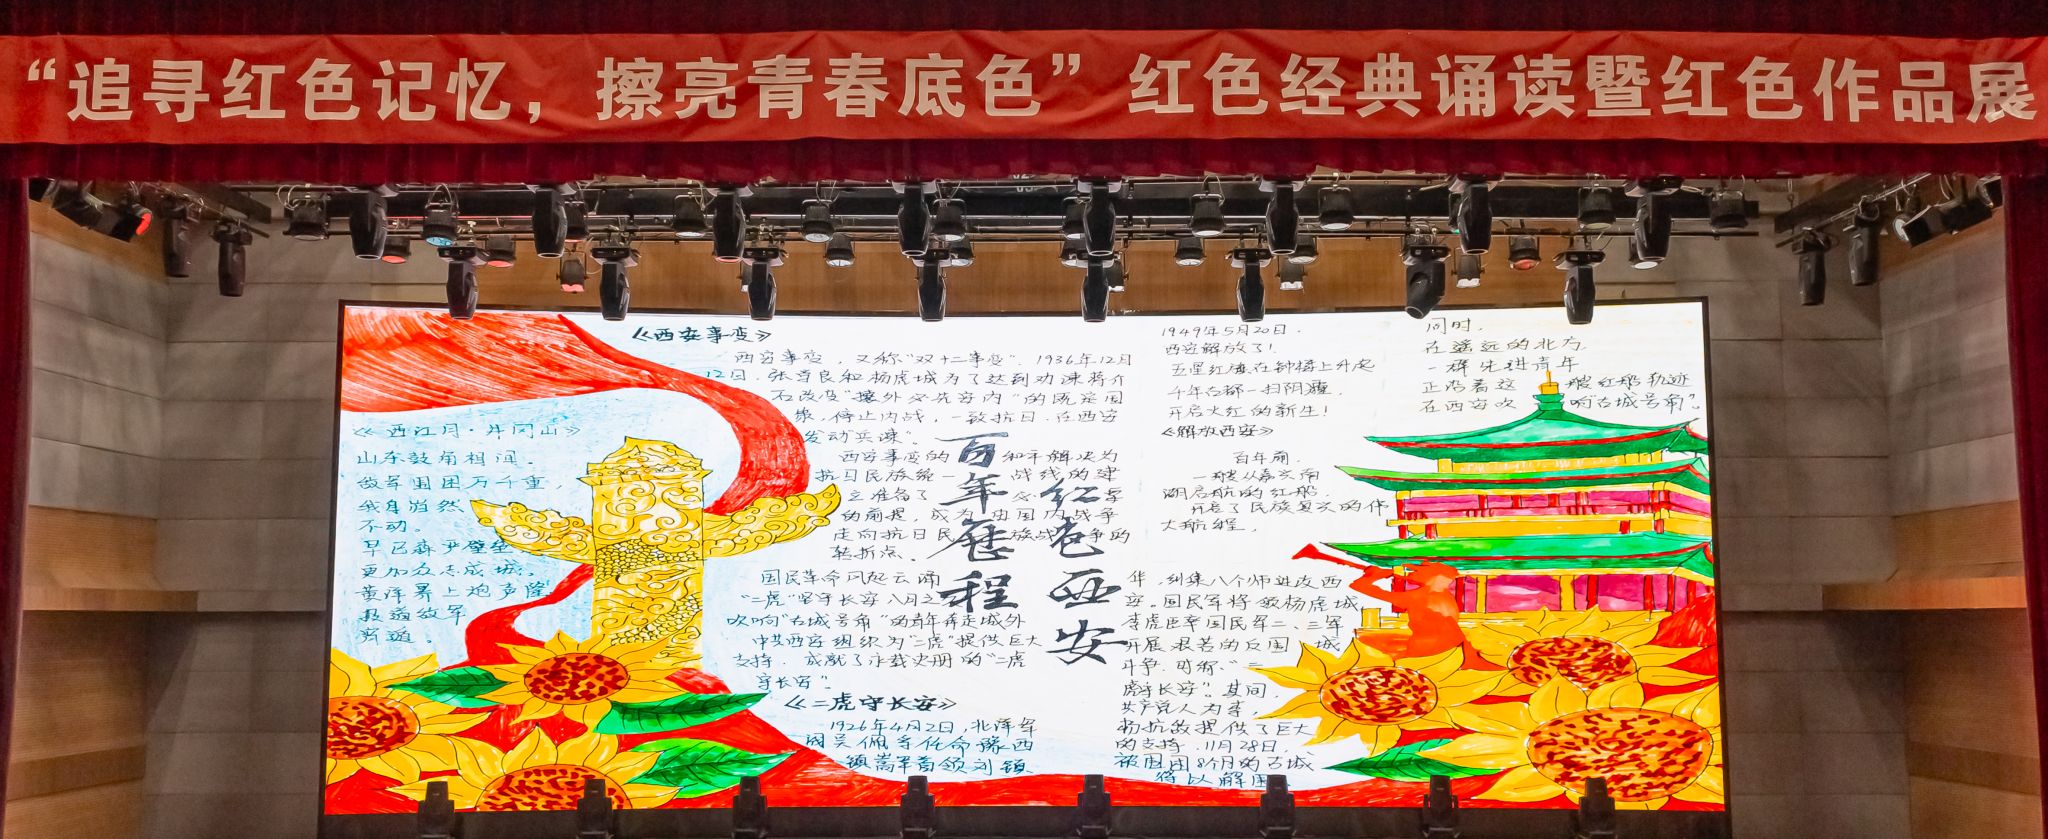 “追寻红色记忆，擦亮青春底色”红色经典诵读暨红色作品展
《西安事变》
西安事变，又称“双十二事变”，1936年12月
12日，张学良和杨虎城为了达到劝谏蒋介
石改变“攘外必先安内”的既定国
策，停止内战，一致抗日，在西安
发动兵谏”。
西安事变的 和平解决为
抗日民族统一 战线的建
立准备了 必 要
的前提，成为 由国内战争
走向抗日民 族战争的
转折点。
《西江月·井冈山》
山东鼓角相闻。
敌军围困万千重，
我自岿然
不动。
早已森严壁垒
更加众志成城。
黄洋界上炮声隆
报道敌军
宵遁。
百年历程
红色西安
国民革命风起云涌
“二虎”坚守长安八月之
吹响“古城号角”的青年奔走城外
中共西安组织为“二虎”提供巨大
支持，成就了永载史册的“二虎
守长安”。
《二虎守长安》
1926年4月2日，北洋军
阀吴佩孚任命豫西
镇嵩军首领刘镇
华，纠集八个师进攻西
安。国民军将领杨虎城，
李虎臣率国民军二、三军
开展艰苦的反围 城
斗争，可称“二
虎守长安”。其间，
共产党人为
抗敌提供了巨大
的支持，11月28日，
被围困8个月的古城
得以解围
1949年5月20日，
西安解放了！
五星红旗在钟楼上升起
千年古都一扫阴霾，
开启火红的新生！
《解放西安》
百年前，
一艘从嘉兴南
湖启航的红船，
开启了民族复兴的伟
大航程，
同时，
在遥远的北方，
一群先进青年
正沿着这 艘红船轨迹
在西安吹 响“古城号角”。